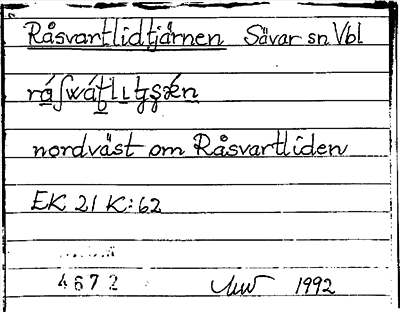 Råsvartlidtjårnen Sävar sn Vbl
nordväst om Råsvartliden
EK 21 K:62
4672 1992